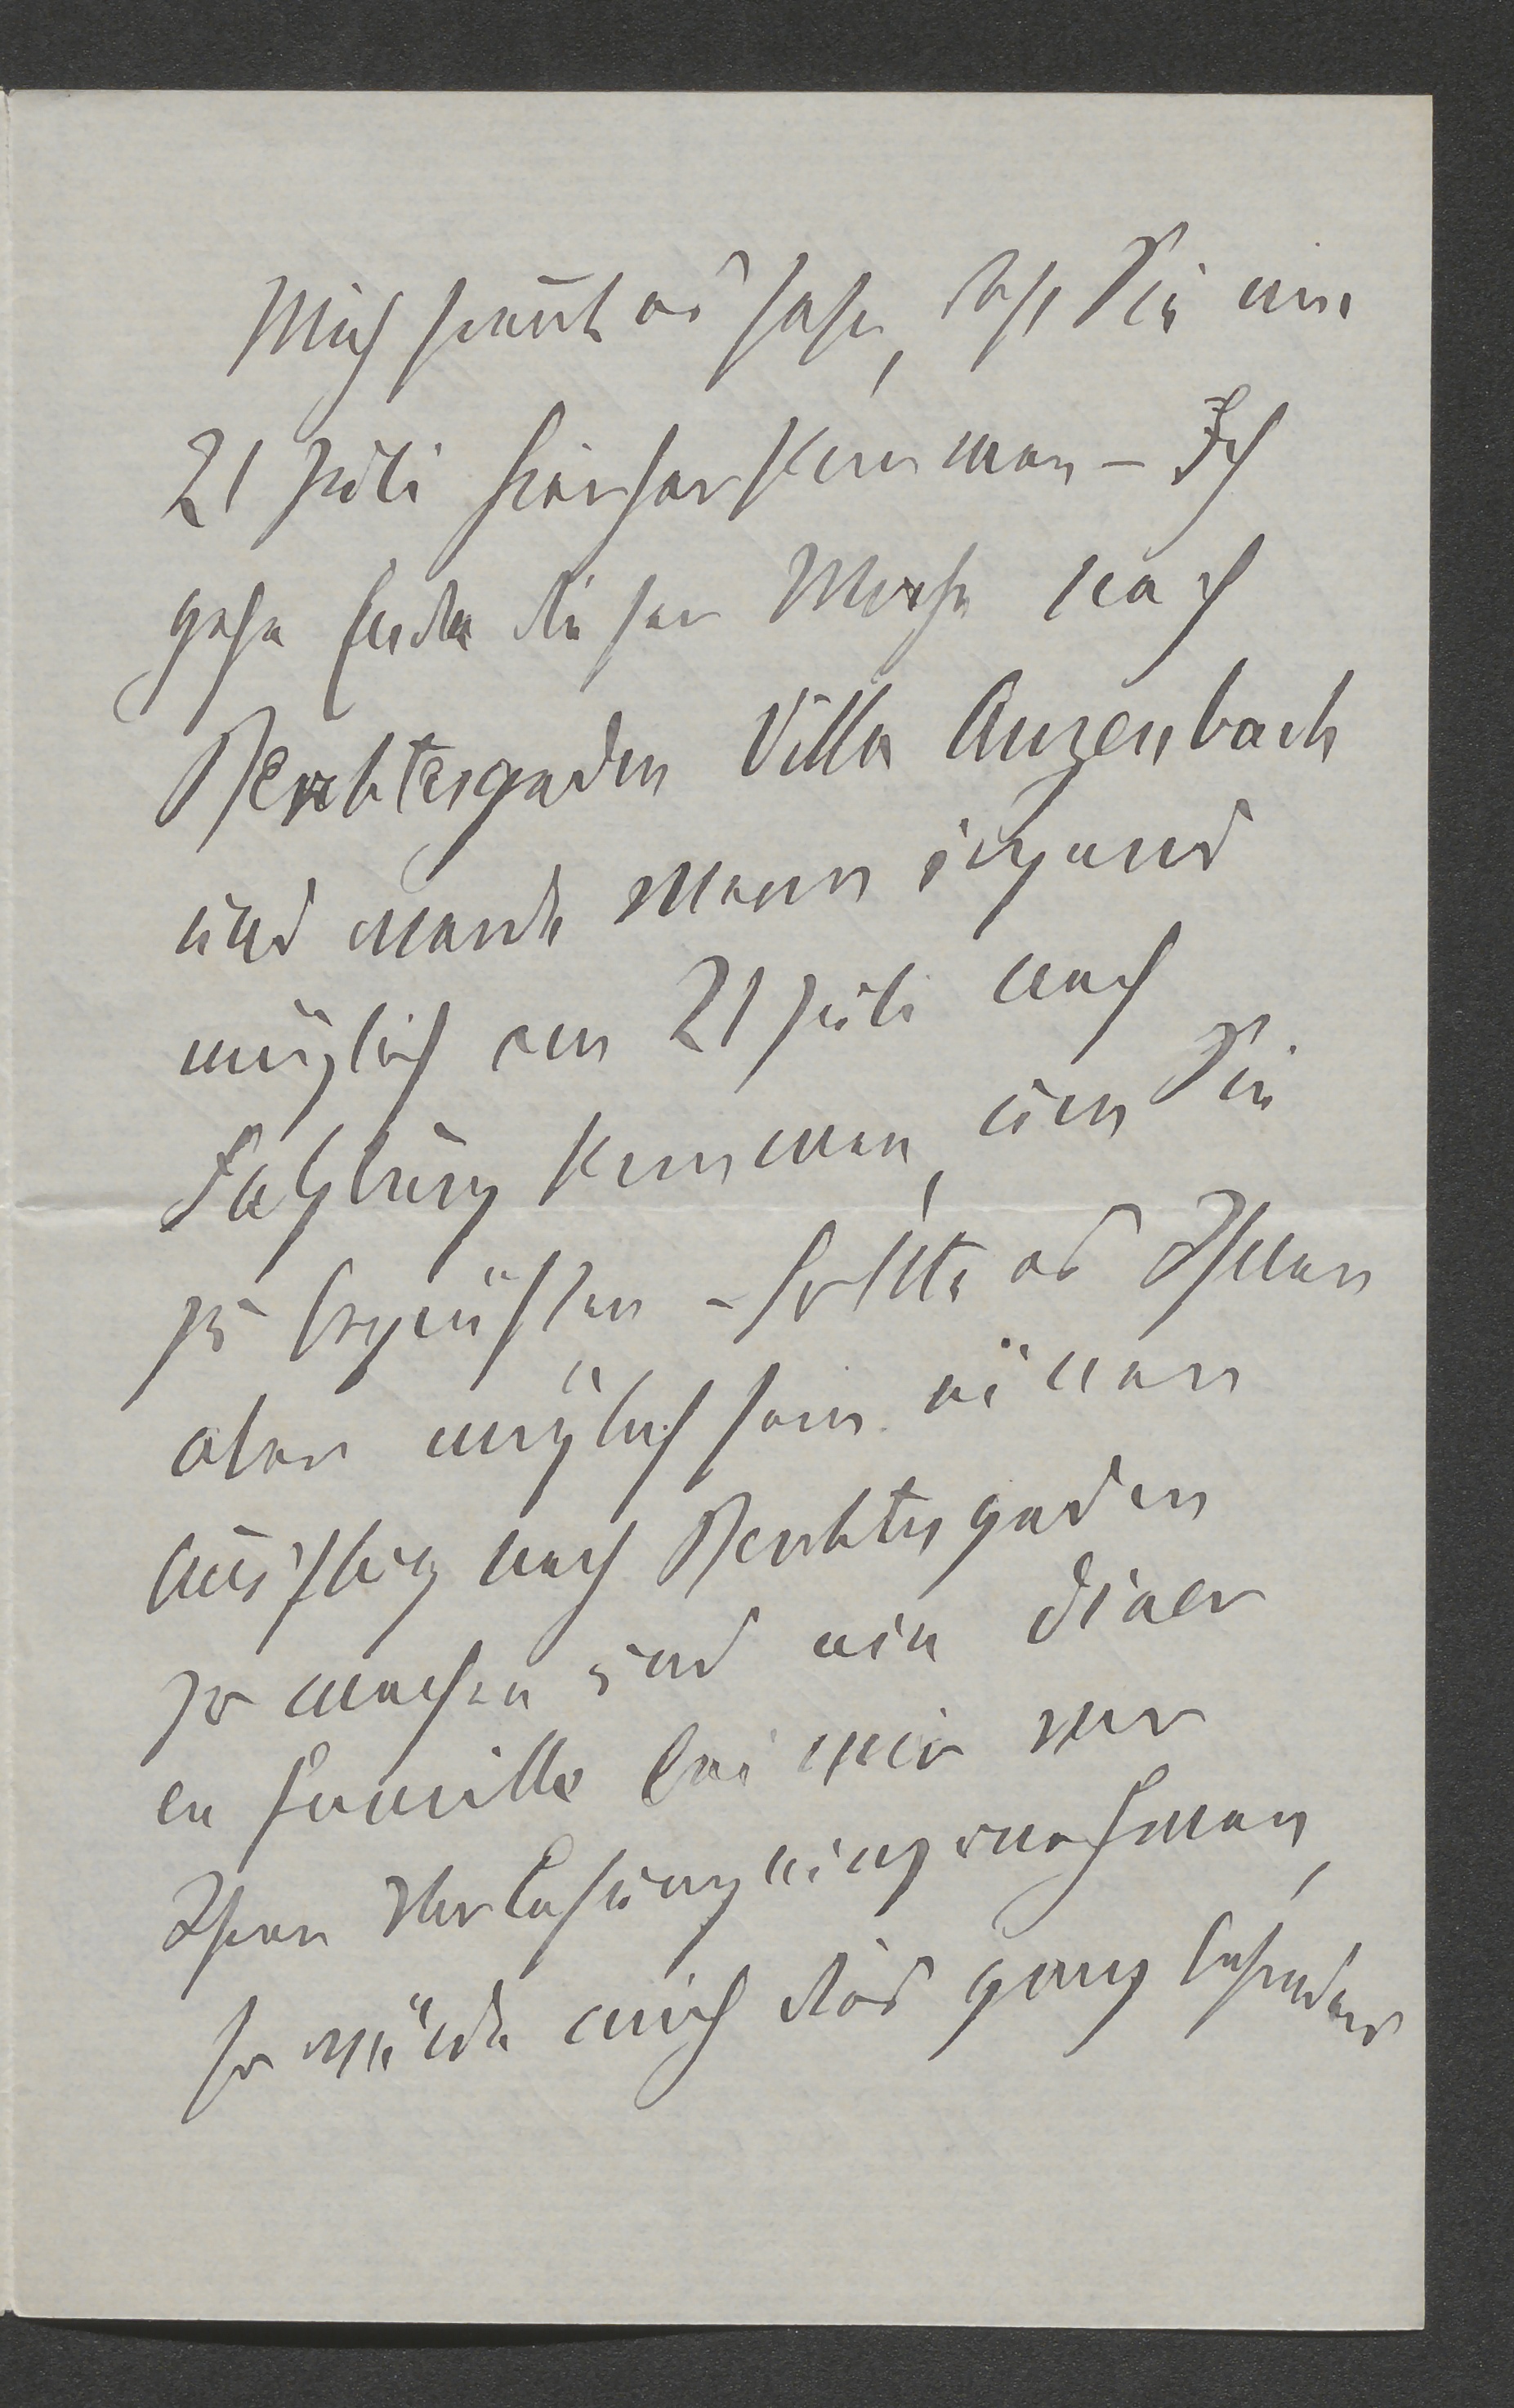 Mich freut es sehr, daß Sie am
21 Juli hierher kommen – Ich
gehe Ende dieser Woche nach
Berchtesgaden Villa Anzenbach
und werde wenn irgend
möglich am 21 Juli nach
Salzburg kommen, um Sie
zu begrüßen – Sollte es Ihnen
aber möglich sein einen
Ausflug nach Berchtesgaden
zu machen und ein diner
en famille bei mir vor
Ihrer Vorlesung einzunehmen,
so würde mich dies ganz besonders